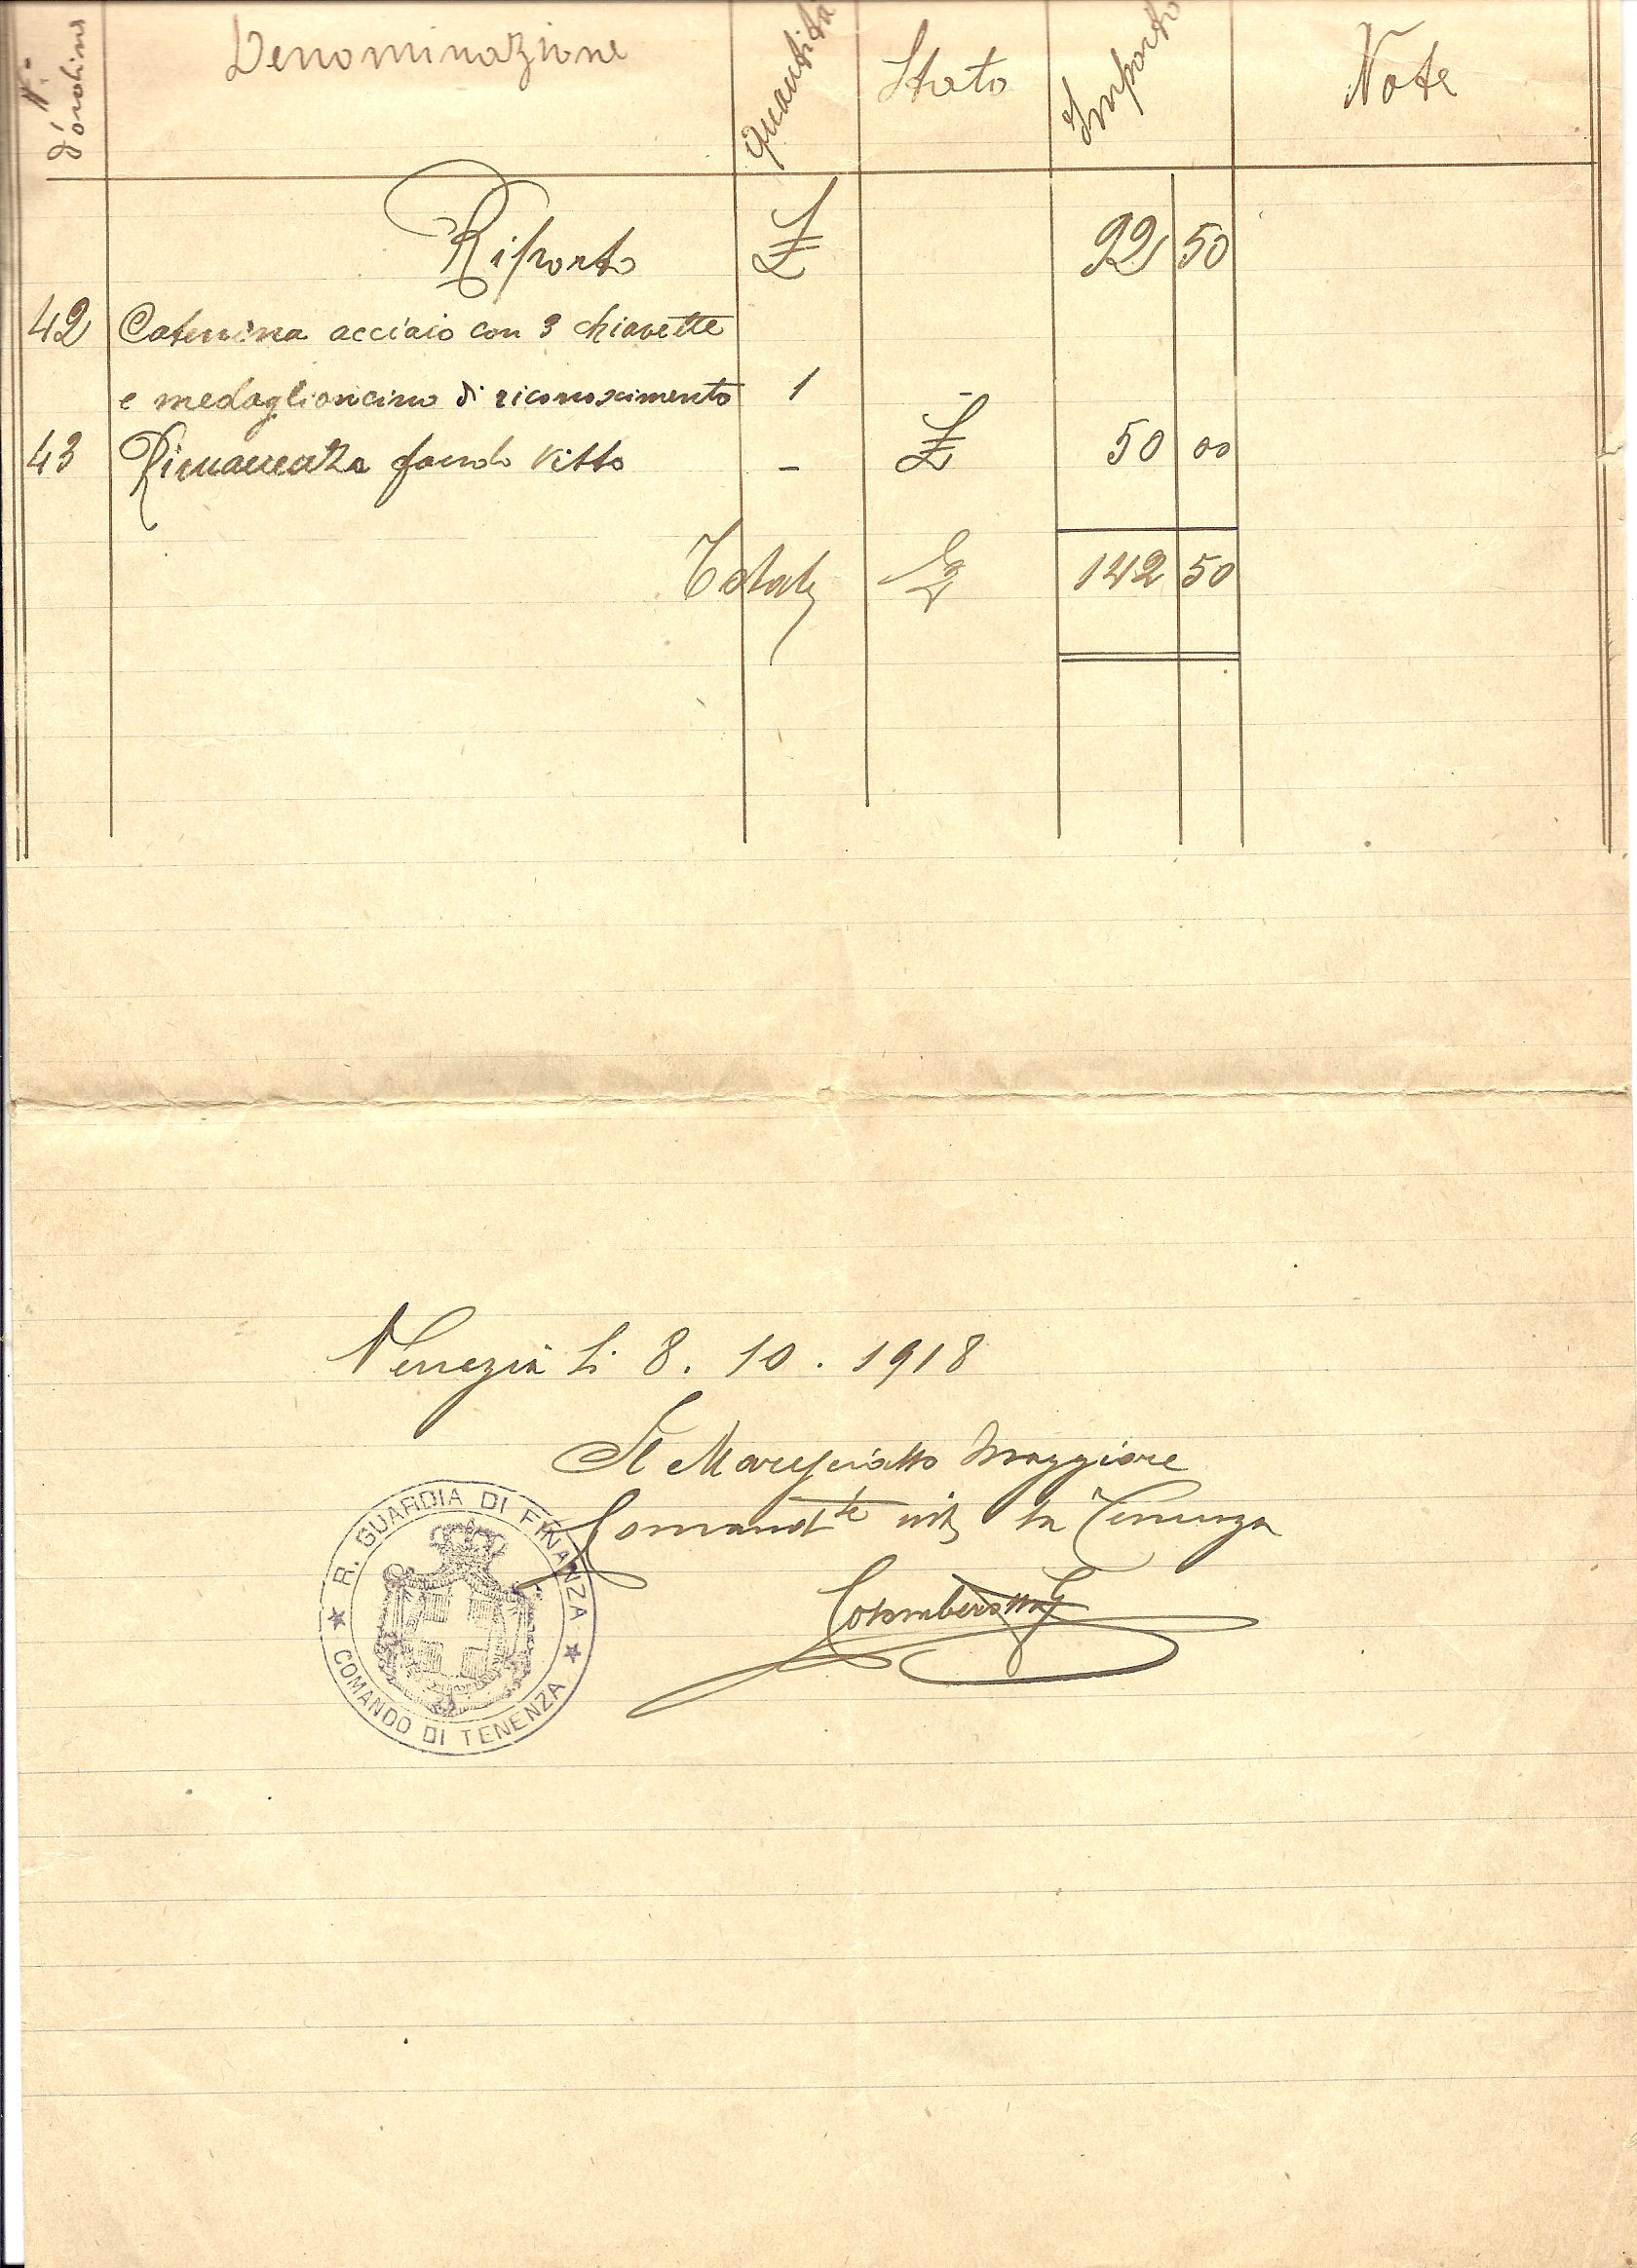 N.° d'ordine Denominazione Quantità Stato Importo Note
Riporto £ 92 50
42 Catenina acciaio con 3 chiavette
e medaglioncino di riconoscimento 1 -
43 Rimanenza fondo vitto - £ 50 00
Totale £ 142 50
Venezia li 8. 10. 1918
Il Maresciallo Maggiore
Comand.te int. la Tenenza
R. GUARDIA DI FINANZA
COMANDO DI TENENZA